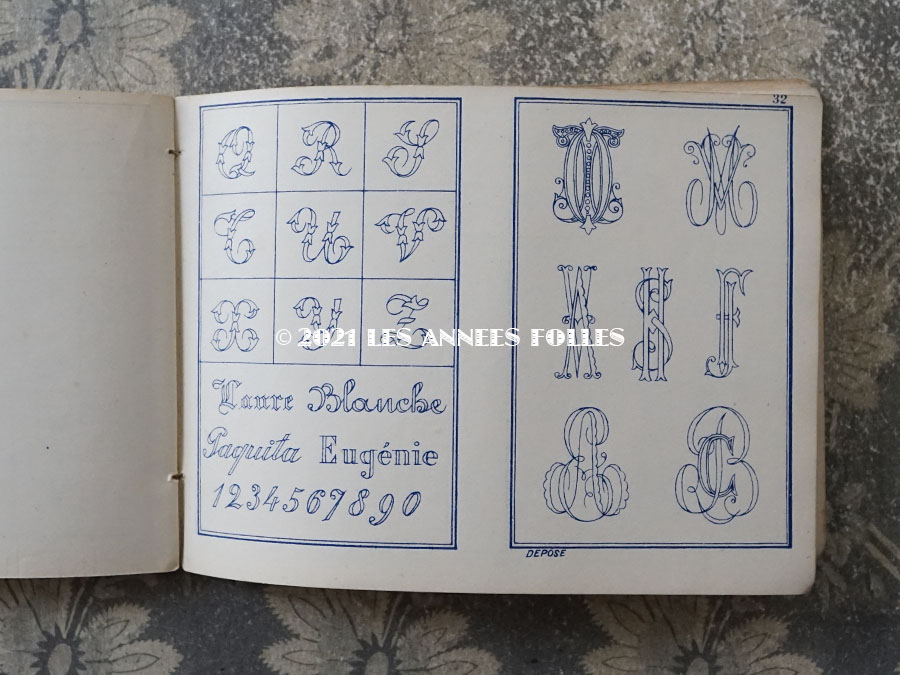 32
Q R S
T U V
X Y Z
© 2021 LES ANNEES FOLLES
Laure Blanche
Paquita Eugénie
1234567890
DEPOSE